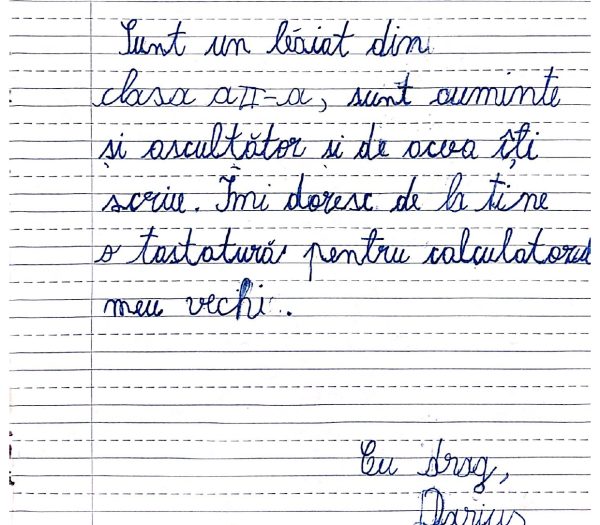 Sunt un băiat din
clasa a II-a, sunt cuminte
și ascultător și de aceea îți
scriu. Îmi doresc de la tine
o tastatură pentru calculatorul
meu vechi.
Cu drag,
Darius